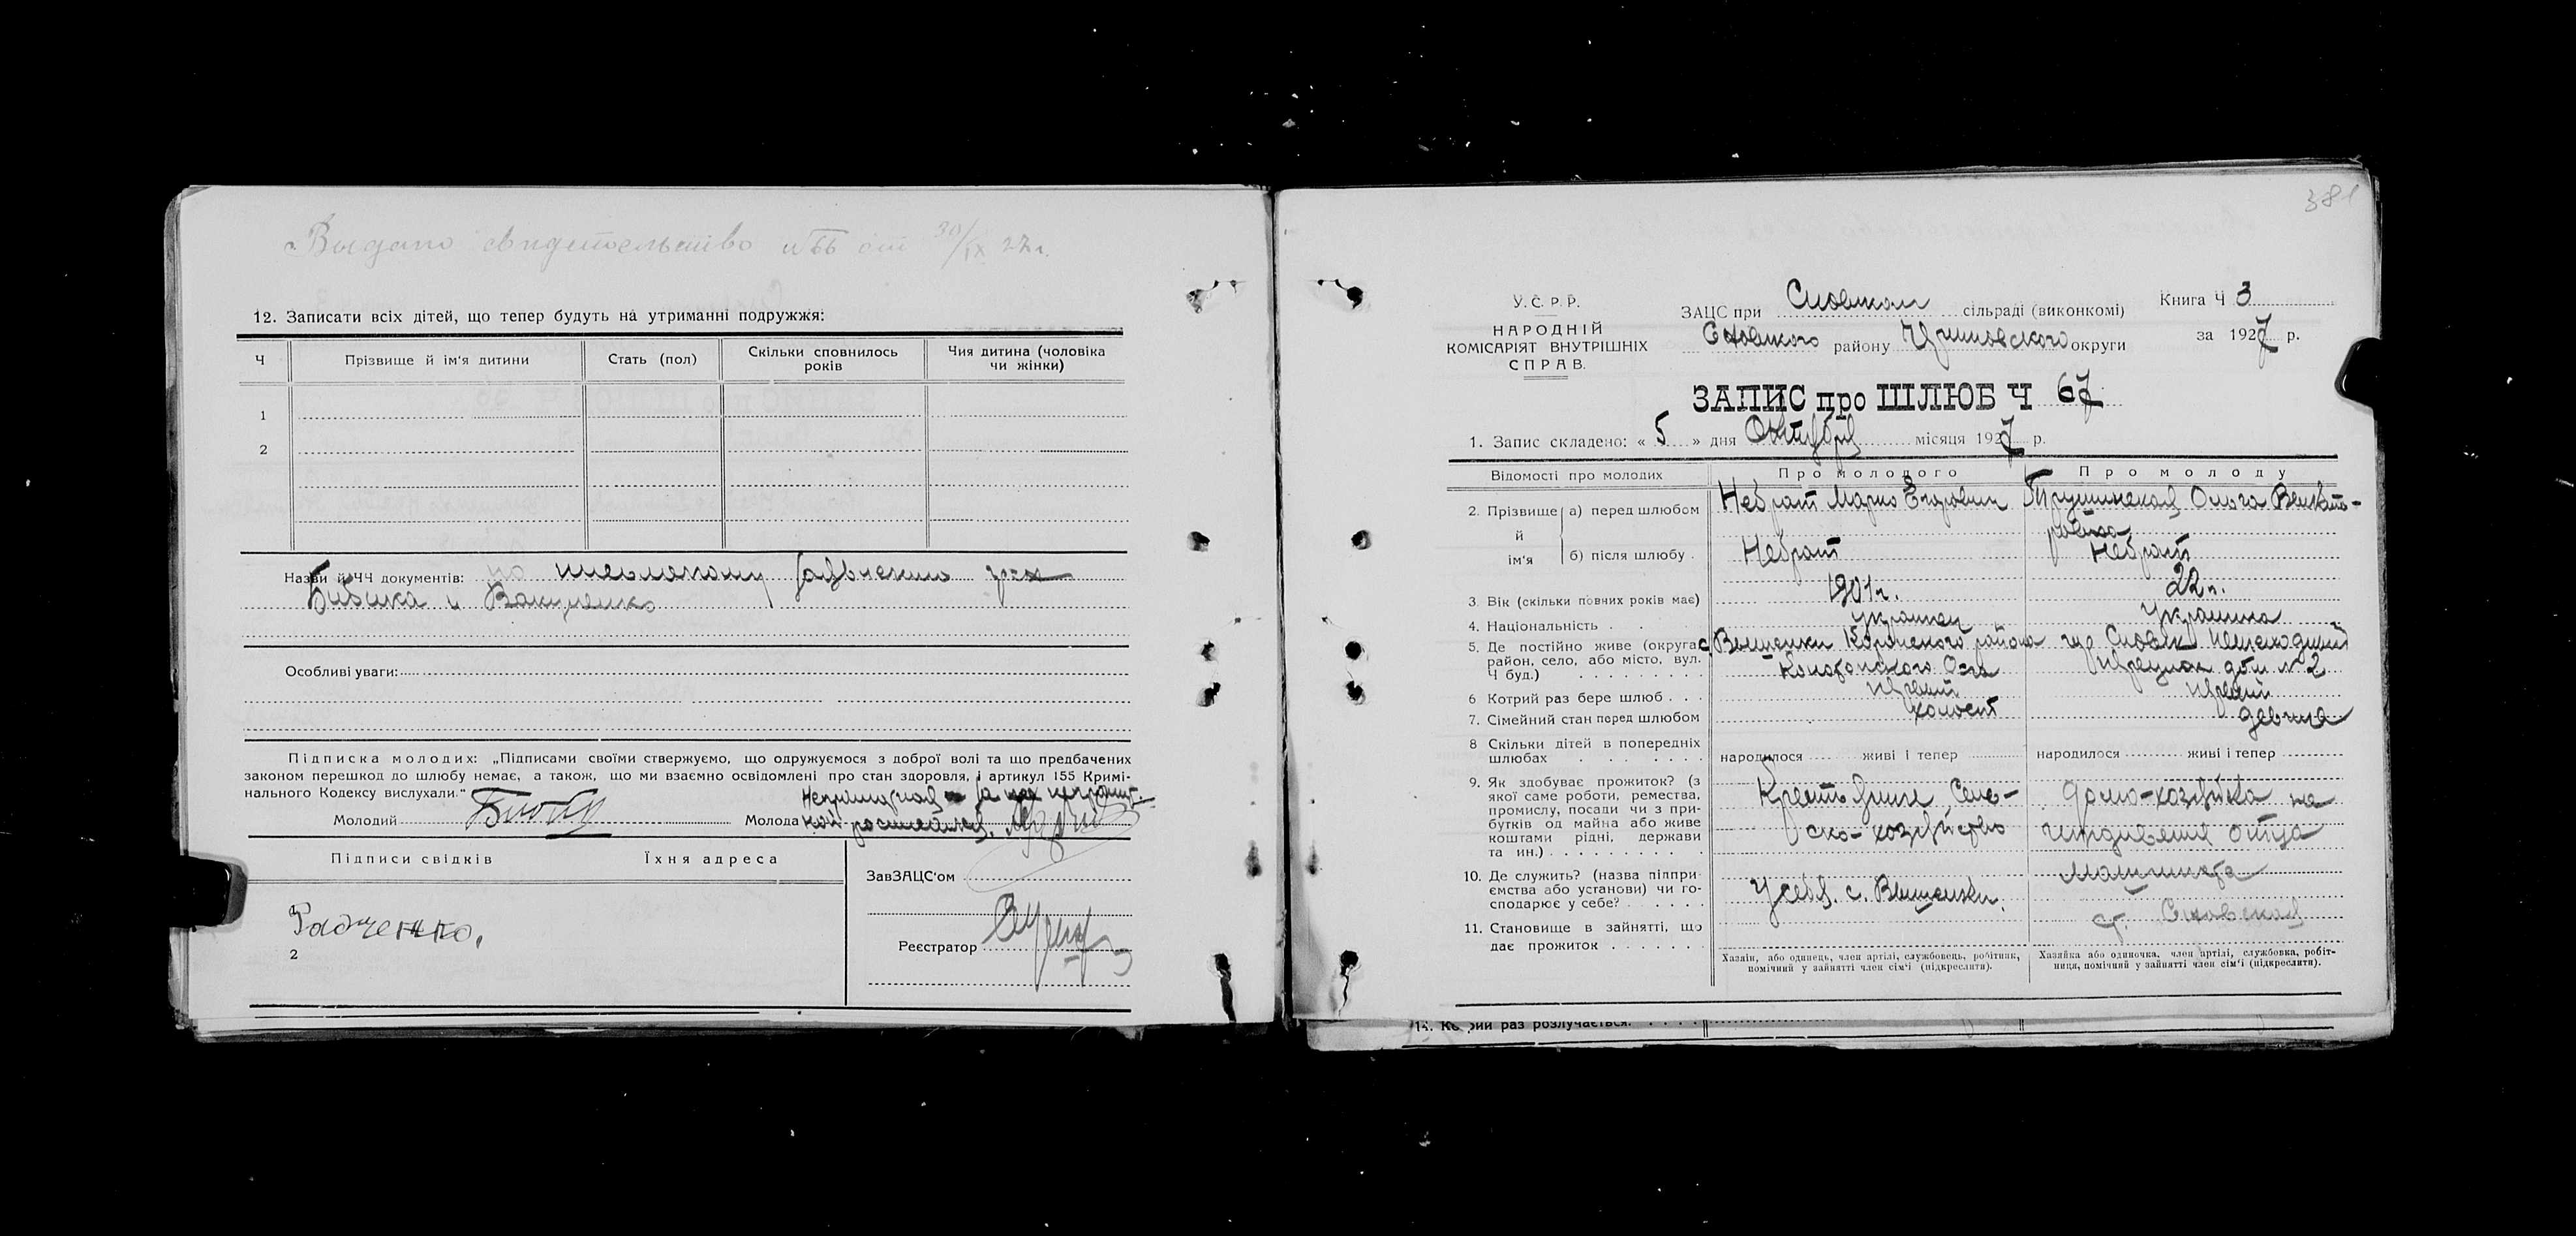 Выдано свидетельство №66 от 30/IX 27г.
12. Записати всіх дітей, що тепер будуть на утриманні подружжя:
Ч
Прізвище й ім'я дитини
Стать (пол)
Скільки сповнилось років
Чия дитина (чоловіка чи жінки)
1
2
Назви й ЧЧ документів: по письменному заявлению гр-н
Бибика и Вакуленко
Особливі уваги:
Підписка молодих: „Підписами своїми ствержуємо, що одружуємося з доброї волі та що предбачених
законом перешкод до шлюбу немає, а також, що ми взаємно освідомлені про стан здоровля, і артикул 155 Кримі-
нального Кодексу вислухали."
Молодий
Молода
Підписи свідків
Їхня адреса
Радченко.
2
ЗавЗАЦС'ом
Реєстратор
381
У. С. Р. Р.
НАРОДНІЙ
КОМІСАРІЯТ ВНУТРІШНІХ
СПРАВ.
ЗАЦС при Сновском сільраді (виконкомі)
Сновского району округи
Книга Ч 3
за 1927 р.
ЗАПИС про ШЛЮБ Ч 67
1. Запис складено: « 5 » дня Октября місяця 1927 р.
Відомості про молодих
Про молодого
Про молоду
2. Прізвище й ім'я
а) перед шлюбом
Небрат Марко Егорович
Ольга
б) після шлюбу
Небрат
Небрат
3. Вік (скільки повних років має)
1901г.
22 л.
4. Національність
Украинец
Украинка
5. Де постійно живе (округа, район, село, або місто, вул. Ч буд.)
с. Вишеньки Коропского района
Конотопского Ок-га
гор Сновск Пешеходный
переулок дом №2
6 Котрий раз бере шлюб
первый
первый
7. Сімейний стан перед шлюбом
холост
девица
8 Скільки дітей в попередніх шлюбах
народилося живі і тепер
народилося живі і тепер
9. Як здобуває прожиток? (з якої саме роботи, ремества, промислу, посади чи з прибутків од майна або живе коштами рідні, держави та ин.)
Крестьянин Сель-
ско-хозяйство
Домо-хозяйка на
иждивении отца
машиниста
10. Де служить? (назва піпприємства або установи) чи господарює у себе?
У себя. с. Вишеньки.
ст. Сновская
11. Становище в зайнятті, що дає прожиток
Хазяін, або одинець, член артілі, службовець, робітник,
помічний у зайнятті член сім'і (підкреслити).
Хазяйка або одиночка, член артілі, службовка, робіт-
ниця, помічний у зайнятті член сім'і (підкреслити).
раз розлучається.